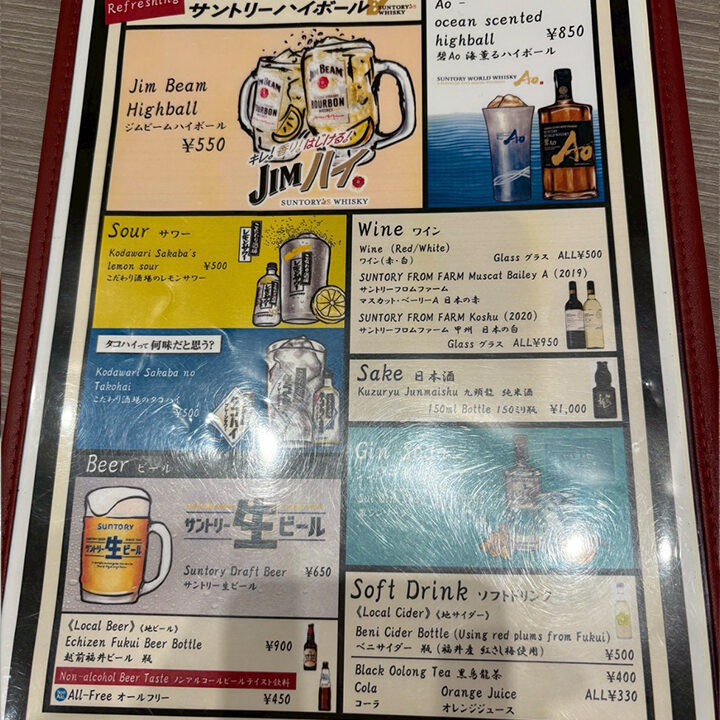 Refreshing
サントリーハイボール
SUNTORY WHISKY
Jim Beam
Highball
ジムビームハイボール
¥550
JIM BEAM
JIM BEAM
BOURBON
キレ!香り!はじける!
JIMハイ。
SUNTORY WHISKY
Ao -
ocean scented
highball ¥850
碧Ao 海薫るハイボール
SUNTORY WORLD WHISKY Ao
Ao
Ao
Sour サワー
Kodawari Sakaba's
lemon sour ¥500
こだわり酒場のレモンサワー
タコハイって何味だと思う?
Kodawari Sakaba no
Takohai
こだわり酒場のタコハイ
¥500
タコハイ
Beer ビール
SUNTORY
サントリー生ビール
サントリー生ビール
Suntory Draft Beer ¥650
サントリー生ビール
《Local Beer》《地ビール》
Echizen Fukui Beer Bottle ¥900
越前福井ビール 瓶
Non-alcohol Beer Taste ノンアルコールビールテイスト飲料
All-Free オールフリー ¥450
Wine ワイン
Wine (Red/White)
ワイン(赤・白) Glass グラス ALL¥500
SUNTORY FROM FARM Muscat Bailey A (2019)
サントリーフロムファーム
マスカット・ベーリーA 日本の赤
SUNTORY FROM FARM Koshu (2020)
サントリーフロムファーム 甲州 日本の白
Glass グラス ALL¥950
Sake 日本酒
Kuzuryu Junmaishu 九頭龍 純米酒
150ml Bottle 150ミリ瓶 ¥1,000
Gin
Soft Drink ソフトドリンク
《Local Cider》《地サイダー》
Beni Cider Bottle (Using red plums from Fukui)
ベニサイダー 瓶 (福井産 紅さし梅使用) ¥500
Black Oolong Tea 黒烏龍茶 ¥400
Cola Orange Juice ALL¥330
コーラ オレンジジュース